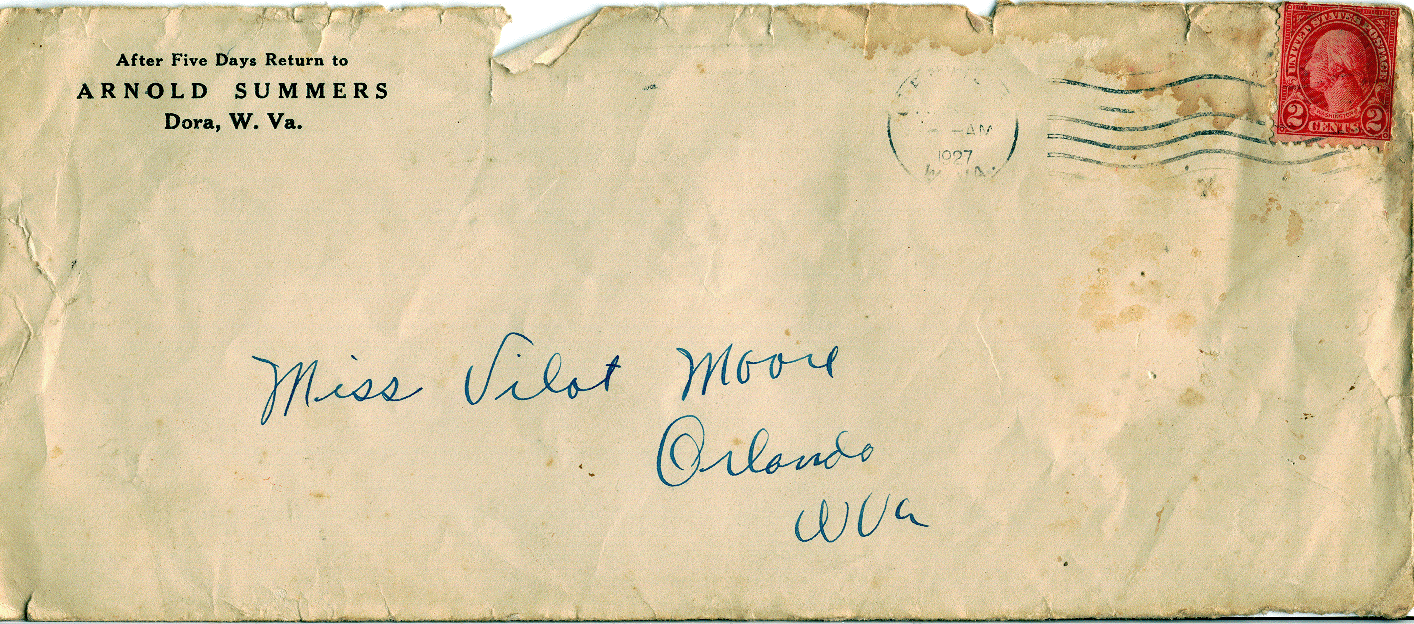 After Five Days Return to
ARNOLD SUMMERS
Dora, W. Va.
AM
1927
W. VA.
UNITED STATES POSTAGE
WASHINGTON
2 CENTS 2
Miss Vilot Moore
Orlando
W Va